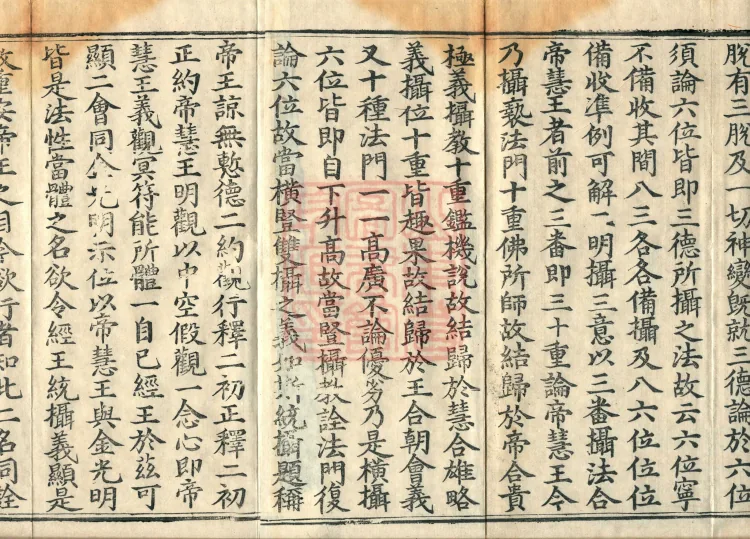 脫有三脫及一切神變旣就三德論於六位
須論六位皆即三德所攝之法故云六位寧
不備收其間八三各各備攝及八六位位位
備收準例可解二明攝三意以三番攝法合
帝慧王者前之三番即三十重論帝慧王今
乃攝褻法門十重佛所師故結歸於帝合貴
極義攝教十重鑑機說故結歸於慧合雄略
義攝位十重皆趣果故結歸於王合朝會義
又十種法門一一高廣不論優劣乃是橫攝
六位皆即自下升高故當豎攝教詮法門復
論六位故當橫豎雙攝之義統攝題稱
帝王諒無慙德二約觀行釋二初正釋二初
正約帝慧王明觀以中空假觀一念心即帝
慧王義觀冥符能所體一自己經王於茲可
顯二會同金光明示位以帝慧王與金光明
皆是法性當體之名欲令經王統攝義顯是
故重安帝王之目令欲行者知此二名同詮